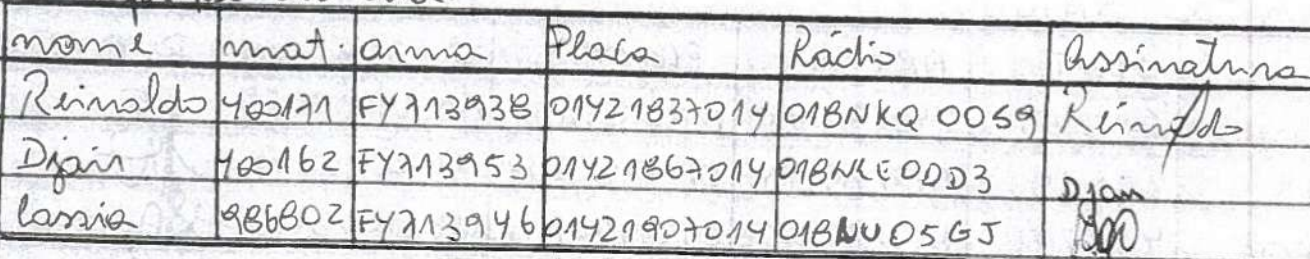 nome mat. arma Placa Rádio Assinatura
Reinaldo 400171 FY713938 01421837014 018NKQ 0059 Reinaldo
Djair 400162 FY713953 01421867014 018NLE0DD3 Djair
Cassia 986802 FY713946 01421907014 018NUO5GJ